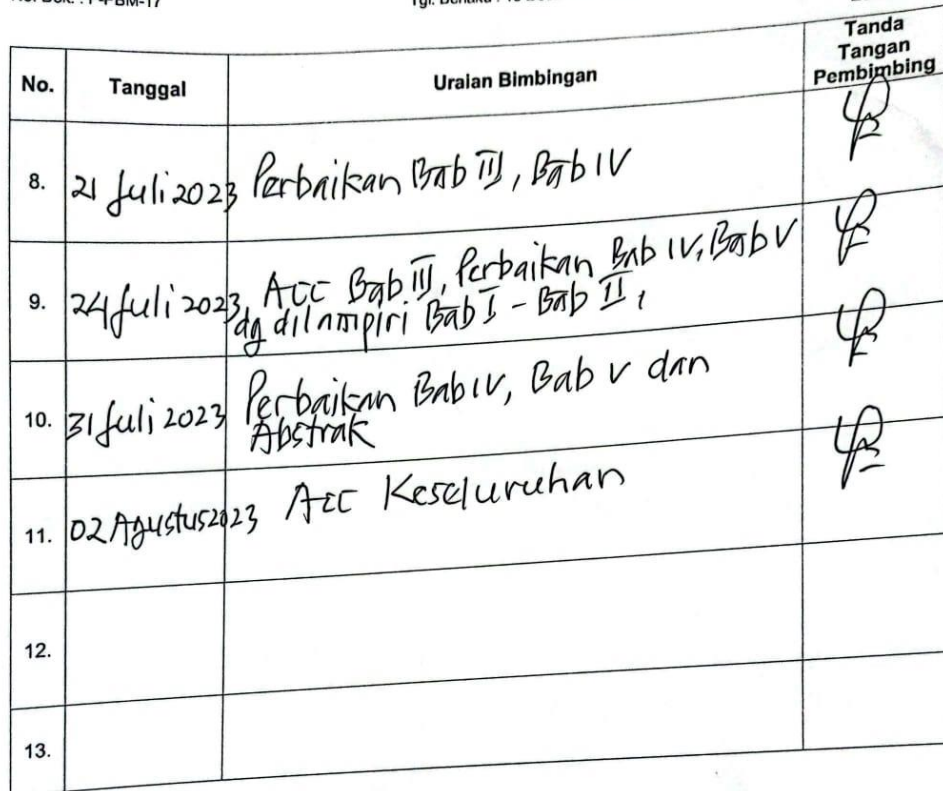 No. Tanggal Uraian Bimbingan Tanda Tangan Pembimbing
8. 21 Juli 2023 Perbaikan Bab III, Bab IV
9. 24 Juli 2023 Acc Bab III, Perbaikan Bab IV, Bab V
dg dilampiri Bab I - Bab II,
10. 31 Juli 2023 Perbaikan Bab IV, Bab V dan
Abstrak
11. 02 Agustus 2023 Acc Keseluruhan
12.
13.